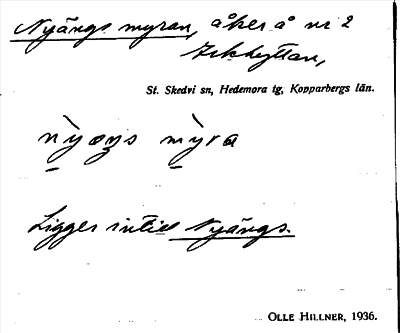 Nyängs myran, åker å nr 2
Arkhyttan,
St. Skedvi sn, Hedemora tg, Kopparbergs län.
nỳæŋs mỳra
Ligger intill Nyängs.
OLLE HILLNER, 1936.